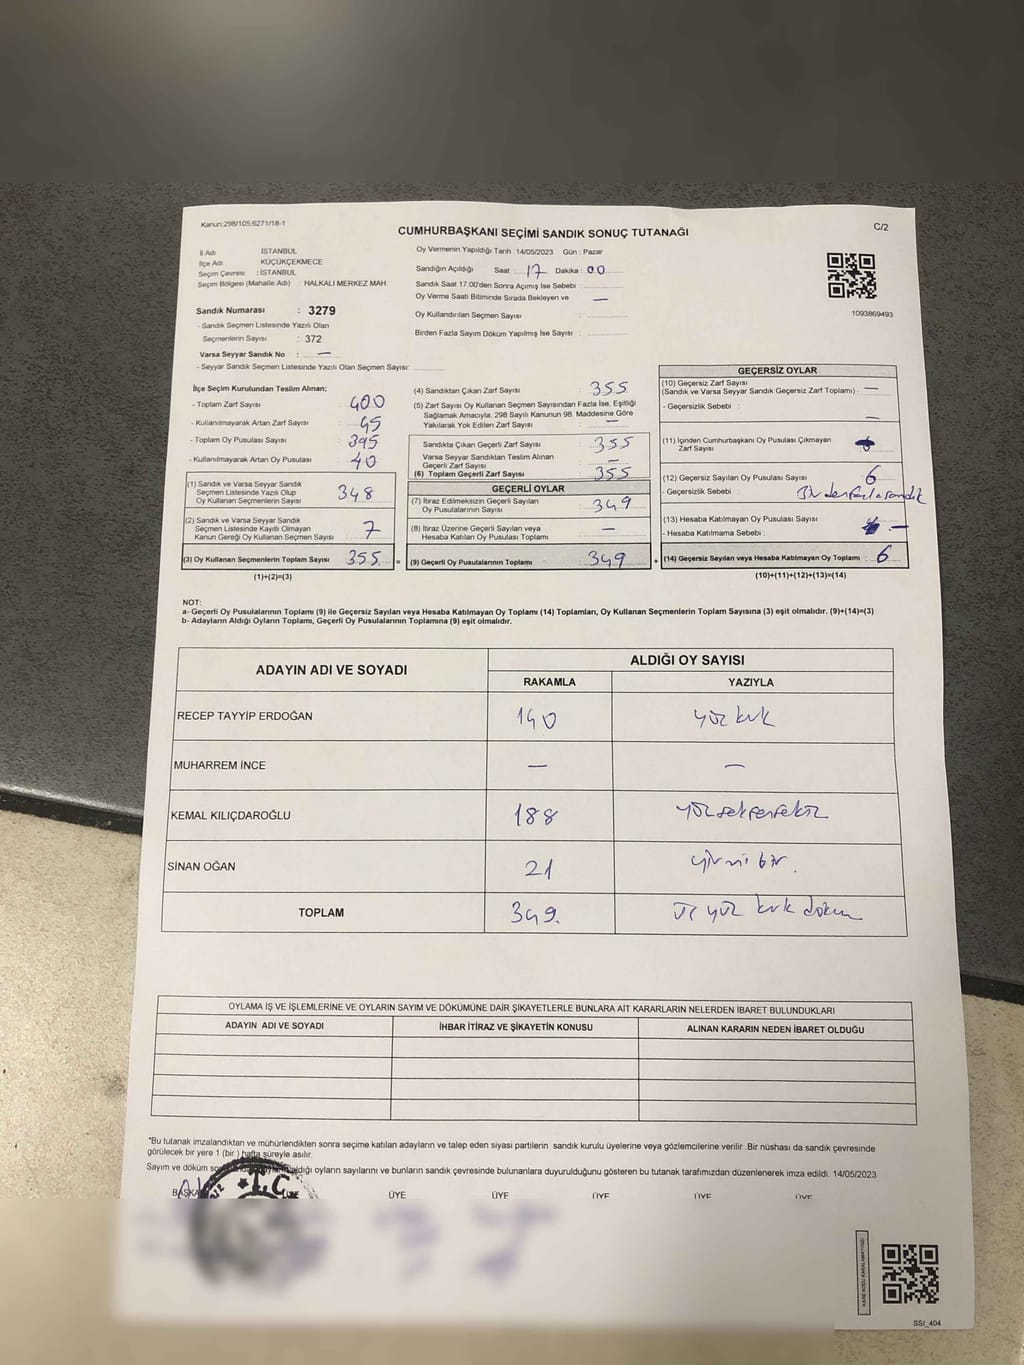 Kanun:298/105;6271/18-1
CUMHURBAŞKANI SEÇİMİ SANDIK SONUÇ TUTANAĞI
C/2
İl Adı : İSTANBUL
İlçe Adı : KÜÇÜKÇEKMECE
Seçim Çevresi : İSTANBUL
Seçim Bölgesi (Mahalle Adı) : HALKALI MERKEZ MAH.
Sandık Numarası : 3279
- Sandık Seçmen Listesinde Yazılı Olan
Seçmenlerin Sayısı : 372
Varsa Seyyar Sandık No : —
- Seyyar Sandık Seçmen Listesinde Yazılı Olan Seçmen Sayısı:
Oy Vermenin Yapıldığı Tarih : 14/05/2023 Gün : Pazar
Sandığın Açıldığı Saat 17 Dakika : 00
Sandık Saat 17.00'den Sonra Açılmış İse Sebebi :
Oy Verme Saati Bitiminde Sırada Bekleyen ve —
Oy Kullandırılan Seçmen Sayısı :
Birden Fazla Sayım Döküm Yapılmış İse Sayısı :
1093869493
İlçe Seçim Kurulundan Teslim Alınan;
- Toplam Zarf Sayısı : 400
- Kullanılmayarak Artan Zarf Sayısı : 45
- Toplam Oy Pusulası Sayısı : 395
- Kullanılmayarak Artan Oy Pusulası : 40
(1) Sandık ve Varsa Seyyar Sandık
Seçmen Listesinde Yazılı Olup
Oy Kullanan Seçmenlerin Sayısı : 348
(2) Sandık ve Varsa Seyyar Sandık
Seçmen Listesinde Kayıtlı Olmayan
Kanun Gereği Oy Kullanan Seçmen Sayısı : 7
(3) Oy Kullanan Seçmenlerin Toplam Sayısı : 355 =
(1)+(2)=(3)
(4) Sandıktan Çıkan Zarf Sayısı : 355
(5) Zarf Sayısı Oy Kullanan Seçmen Sayısından Fazla İse, Eşitliği
Sağlamak Amacıyla; 298 Sayılı Kanunun 98. Maddesine Göre
Yakılarak Yok Edilen Zarf Sayısı : —
Sandıkta Çıkan Geçerli Zarf Sayısı : 355
Varsa Seyyar Sandıktan Teslim Alınan
Geçerli Zarf Sayısı : —
(6) Toplam Geçerli Zarf Sayısı : 355
GEÇERLİ OYLAR
(7) İtiraz Edilmeksizin Geçerli Sayılan
Oy Pusulalarının Sayısı : 349
(8) İtiraz Üzerine Geçerli Sayılan veya
Hesaba Katılan Oy Pusulası Toplamı : —
(9) Geçerli Oy Pusulalarının Toplamı : 349 +
GEÇERSİZ OYLAR
(10) Geçersiz Zarf Sayısı
(Sandık ve Varsa Seyyar Sandık Geçersiz Zarf Toplamı) : —
- Geçersizlik Sebebi : —
(11) İçinden Cumhurbaşkanı Oy Pusulası Çıkmayan
Zarf Sayısı
(12) Geçersiz Sayılan Oy Pusulası Sayısı : 6
- Geçersizlik Sebebi : Birden fazla sandık
(13) Hesaba Katılmayan Oy Pusulası Sayısı : —
- Hesaba Katılmama Sebebi :
(14) Geçersiz Sayılan veya Hesaba Katılmayan Oy Toplamı : 6
(10)+(11)+(12)+(13)=(14)
NOT:
a- Geçerli Oy Pusulalarının Toplamı (9) ile Geçersiz Sayılan veya Hesaba Katılmayan Oy Toplamı (14) Toplamları, Oy Kullanan Seçmenlerin Toplam Sayısına (3) eşit olmalıdır. (9)+(14)=(3)
b- Adayların Aldığı Oyların Toplamı, Geçerli Oy Pusulalarının Toplamına (9) eşit olmalıdır.
ADAYIN ADI VE SOYADI ALDIĞI OY SAYISI
RAKAMLA YAZIYLA
RECEP TAYYİP ERDOĞAN 140 yüz kırk
MUHARREM İNCE — —
KEMAL KILIÇDAROĞLU 188 yüzseksensekiz
SİNAN OĞAN 21 yirmi bir.
TOPLAM 349. üç yüz kırk dokuz
OYLAMA İŞ VE İŞLEMLERİNE VE OYLARIN SAYIM VE DÖKÜMÜNE DAİR ŞİKAYETLERLE BUNLARA AİT KARARLARIN NELERDEN İBARET BULUNDUKLARI
ADAYIN ADI VE SOYADI İHBAR İTİRAZ VE ŞİKAYETİN KONUSU ALINAN KARARIN NEDEN İBARET OLDUĞU
*Bu tutanak imzalandıktan ve mühürlendikten sonra seçime katılan adayların ve talep eden siyasi partilerin sandık kurulu üyelerine veya gözlemcilerine verilir .Bir nüshası da sandık çevresinde
görülecek bir yere 1 (bir ) hafta süreyle asılır.
Sayım ve döküm aldığı oyların sayılarını ve bunların sandık çevresinde bulunanlara duyurulduğunu gösteren bu tutanak tarafımızdan düzenlenerek imza edildi. 14/05/2023
BAŞKAN ÜYE ÜYE ÜYE ÜYE ÜYE ÜYE
T.C
KARE KODU KARALAMAYINIZ!
SSI_404